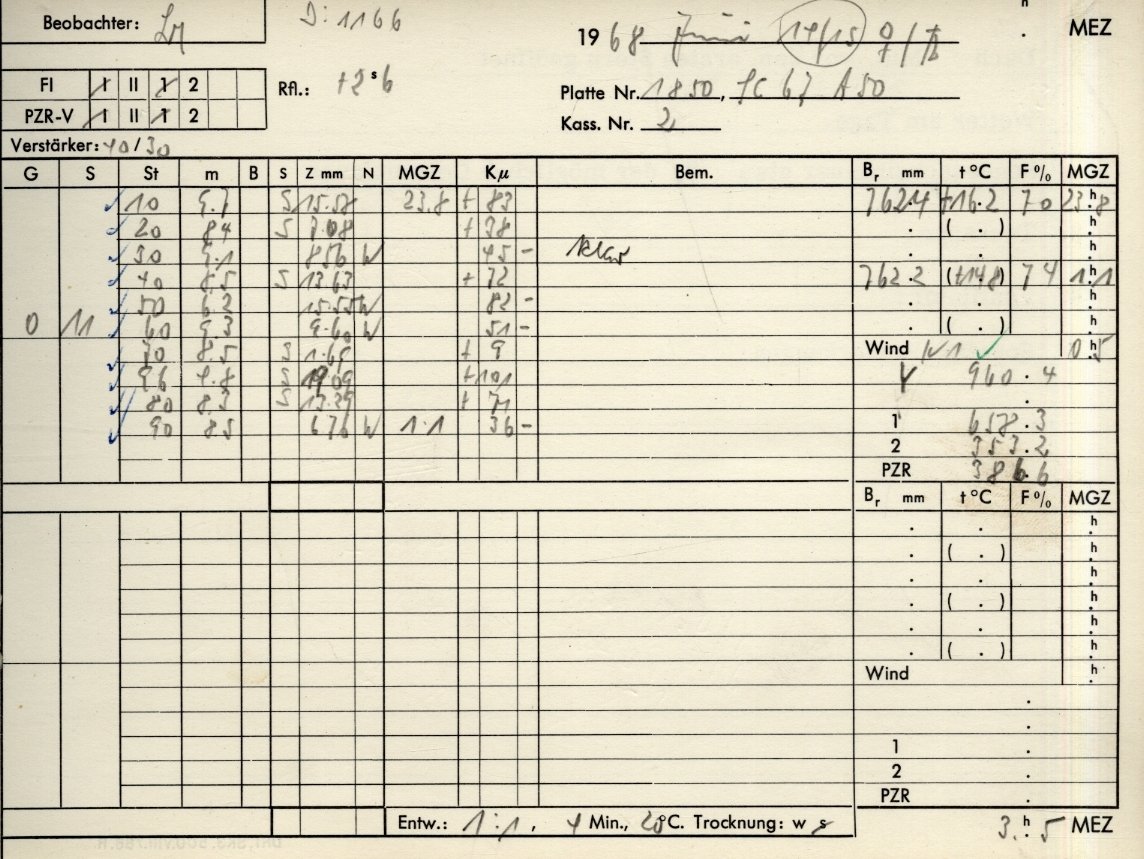 Beobachter:
D: 1166
h
. MEZ
1968 Juni 14/15
FI 1 II 1 2
Rfl.: +2ˢ6
Platte Nr. 1850,
PZR-V 1 II 1 2
Kass. Nr. 2
Verstärker: 40/30
G S St m B S Z mm N MGZ Kμ Bem. Bᵣ mm t°C F% MGZ
10 S 15.58 23.8 + 83 762.4 +16.2 70 23.ʰ8
20 8.4 S 7.08 + 38 . ( . ) .ʰ
30 9.1 8.56 W 45 - klar . . .ʰ
40 8.5 S 13.63 + 72 762.2 (+14.8) 74 1.ʰ1
50 6.2 15.55 W 82 - . . .ʰ
0 11 60 9.3 9.60 W 51 - . ( . ) .ʰ
70 8.5 S 1.69 + 9 Wind 0.ʰ5
96 4.8 S 19.09 +101 V 960.4
80 8.3 S 13.39 + 71 .
90 8.5 6.76 W 1.1 36 - 1 658.3
2 353.2
PZR 386.6
Bᵣ mm t°C F% MGZ
. . .ʰ
. ( . ) .ʰ
. . .ʰ
. ( . ) .ʰ
. . .ʰ
. ( . ) .ʰ
Wind .ʰ
.
.
1 .
2 .
PZR .
Entw.: 1:1, 4 Min., 20°C. Trocknung: w s 3.ʰ5 MEZ